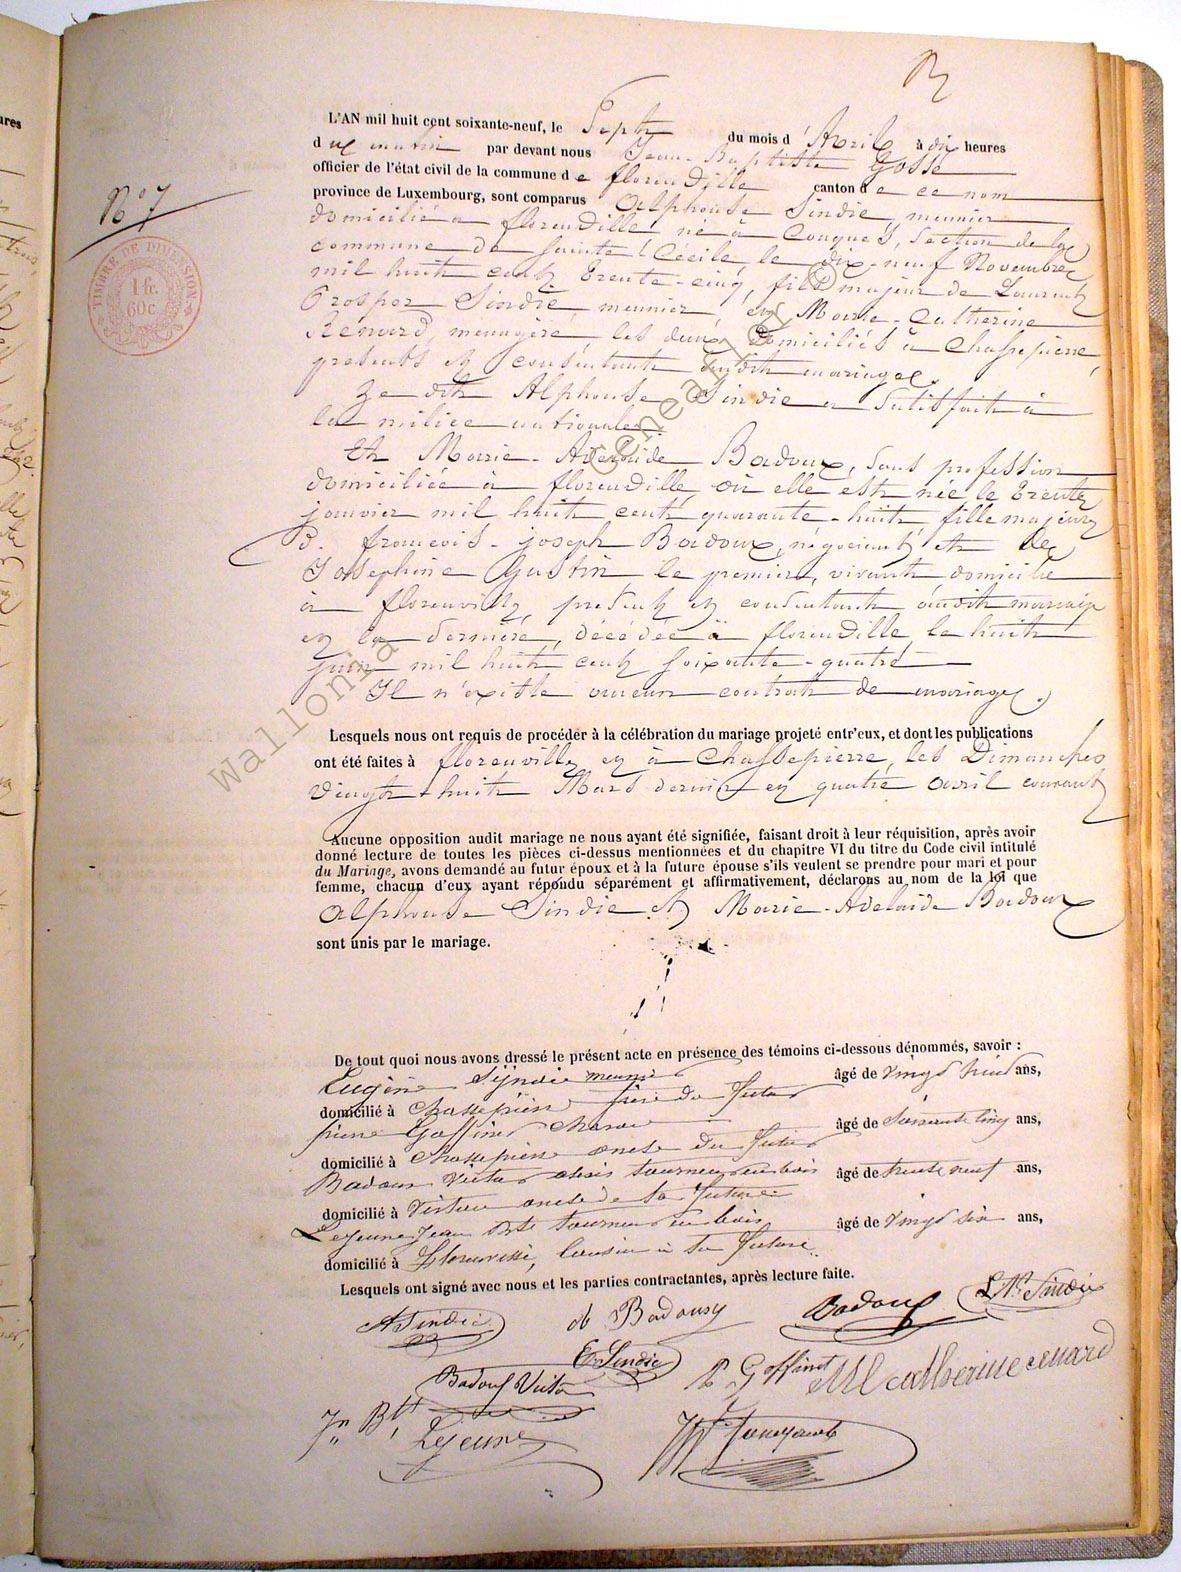 N° 7
TIMBRE DE DIMENSION
1 fr.
60c.
L'AN mil huit cent soixante-neuf, le Sept du mois d'Avril à dix heures
du matin par devant nous Jean-Baptiste Gosse
officier de l'état civil de la commune de florenville canton de ce nom
province de Luxembourg, sont comparus Alphonse Sindic, meunier
domicilié à florenville, né à Conques, section de la
commune de Sainte Cécile, le dix-neuf Novembre
mil huit cent trente-cinq, fils majeur de Laurent
Prosper Sindic, meunier, et Marie-Catherine
Renard, menagère, les deux domiciliés à Chassepierre,
présents et consentants audit mariage.
Le dit Alphonse Sindic a satisfait à
la milice nationale.
Et Marie-Adelaide Badoux, sans profession
domiciliée à florenville, où elle est née le trente
janvier mil huit cent quarante-huit fille majeure
d. francois-joseph Badoux, négociant et de
Josephine Gustin le premier, vivant, domicilié
à florenville, présent et consentant audit mariage
et la dernière, décédée à florenville le huit
juin mil huit cent soixante-quatre
Il n'existe aucun contrat de mariage.
Lesquels nous ont requis de procéder à la célébration du mariage projeté entr'eux, et dont les publications
ont été faites à florenville et à Chassepierre, les Dimanches
vingt-huit Mars dernier et quatre avril courant
Aucune opposition audit mariage ne nous ayant été signifiée, faisant droit à leur réquisition, après avoir
donné lecture de toutes les pièces ci-dessus mentionnées et du chapitre VI du titre du Code civil intitulé
du Mariage, avons demandé au futur époux et à la future épouse s'ils veulent se prendre pour mari et pour
femme, chacun d'eux ayant répondu séparément et affirmativement, déclarons au nom de la loi que
Alphonse Sindic et Marie-Adelaide Badoux
sont unis par le mariage.
De tout quoi nous avons dressé le présent acte en présence des témoins ci-dessous dénommés, savoir :
Eugène Sijndic meunier âgé de vingt huit ans,
domicilié à Chassepierre frère du futur
pierre Goffinet âgé de soixante cinq ans,
domicilié à Chassepierre oncle du futur
Badoux Victor tourneur en bois âgé de trente neuf ans,
domicilié à Virton oncle de la future
Lejeune Jean Bte tourneur en bois âgé de vingt six ans,
domicilié à Florenville, cousin à la future
Lesquels ont signé avec nous et les parties contractantes, après lecture faite.
A Sindic
Badoux
Badoux
Sindic
E Sindic
Badoux Victor
P Goffinet
M Catherine renard
Jn Bte
Lejeune
wallonia
© Geneanet